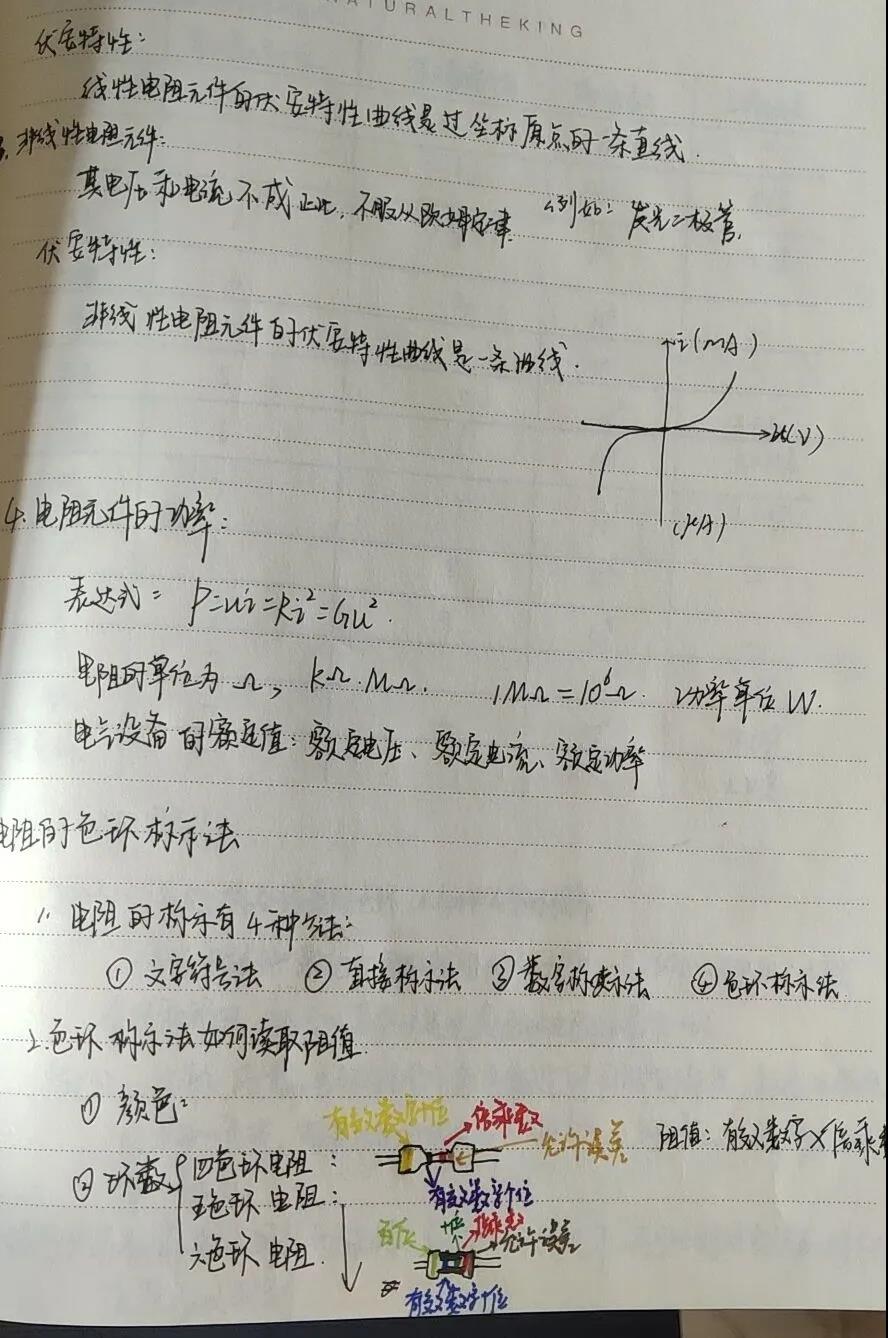 NATURALTHEKING
伏安特性:
线性电阻元件的伏安特性曲线是过坐标原点的一条直线.
3. 非线性电阻元件:
其电压和电流不成正比,不服从欧姆定律. 例如:发光二极管.
伏安特性:
非线性电阻元件的伏安特性曲线是一条曲线.
i(mA)
u(V)
(μA)
4. 电阻元件的功率:
表达式= P=ui=Ri²=Gu².
电阻的单位为Ω, kΩ. MΩ. 1MΩ=10⁶Ω. 功率单位W.
电气设备的额定值:额定电压、额定电流、额定功率
电阻的色环标示法
1. 电阻的标示有4种方法:
①文字符号法 ②直接标示法 ③数字标示法 ④色环标示法.
2. 色环标示法如何读取阻值.
①颜色:
有效数字十位 倍乘数
允许误差 阻值:有效数字×倍乘
②环数 四色环电阻:
有效数字个位
五色环电阻:
百位 十位 允许误差
六色环电阻.